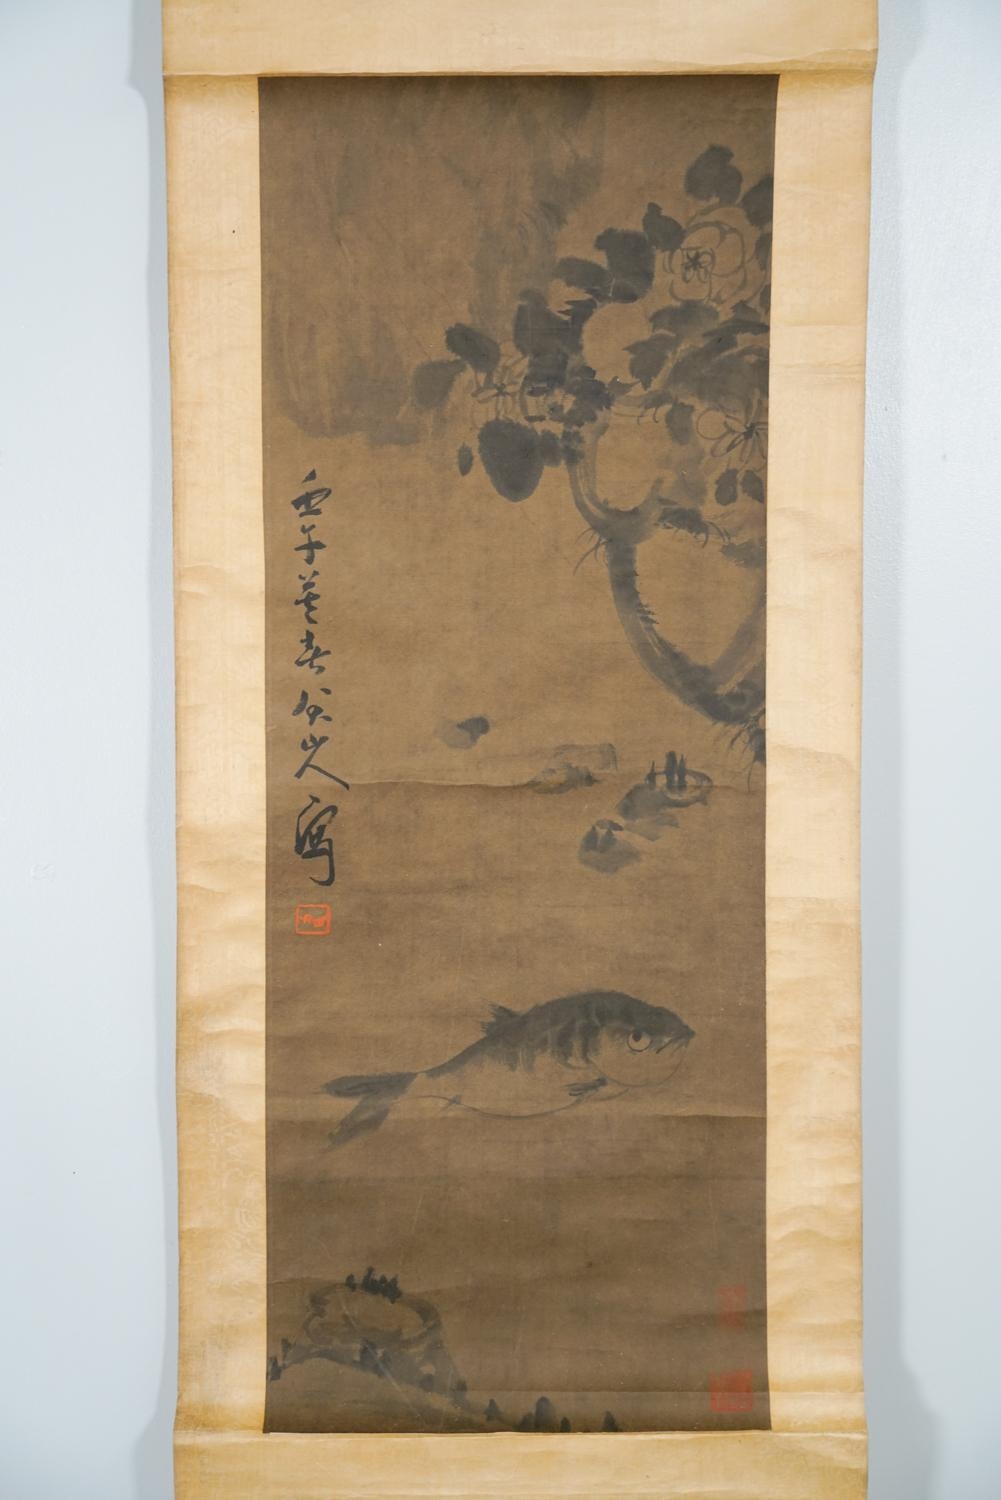 壬午暮春八大山人寫